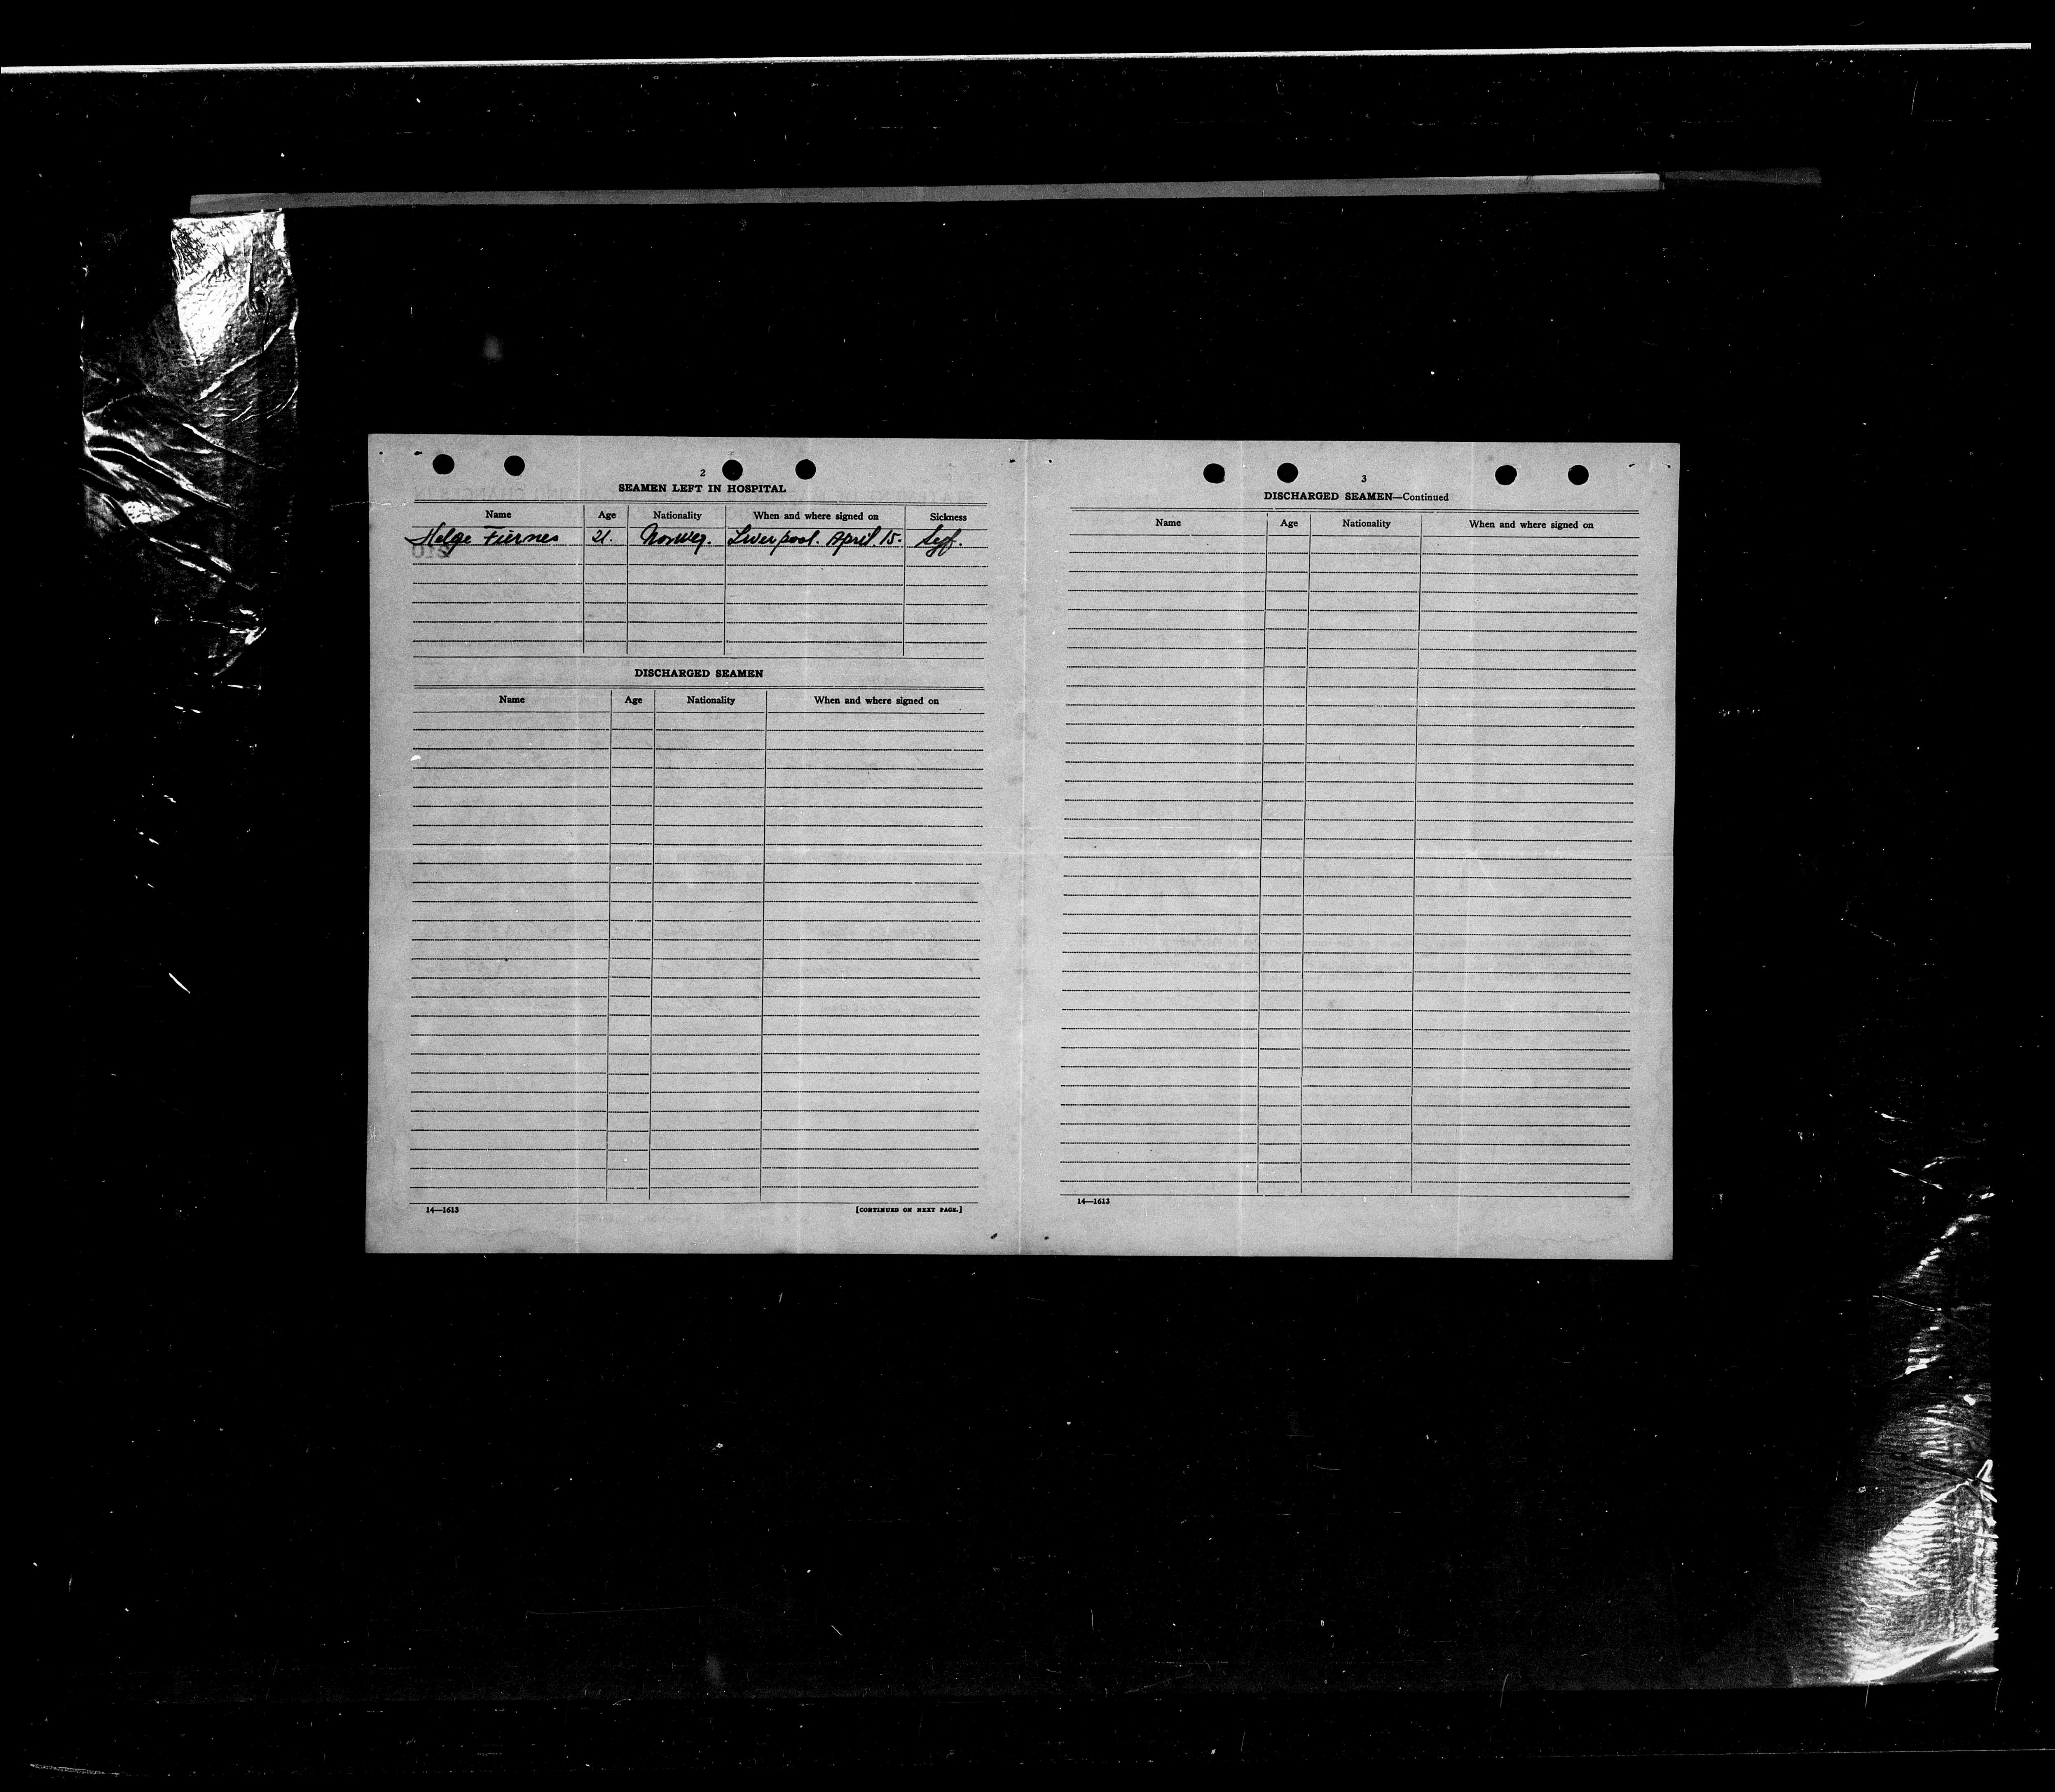 2
SEAMEN LEFT IN HOSPITAL
Name Age Nationality When and where signed on Sickness
Helge Fiernes 21. Norweg. Liverpool. April. 15. Syf.
DISCHARGED SEAMEN
Name Age Nationality When and where signed on
14—1613 [CONTINUED ON NEXT PAGE.]
3
DISCHARGED SEAMEN—Continued
Name Age Nationality When and where signed on
14—1613